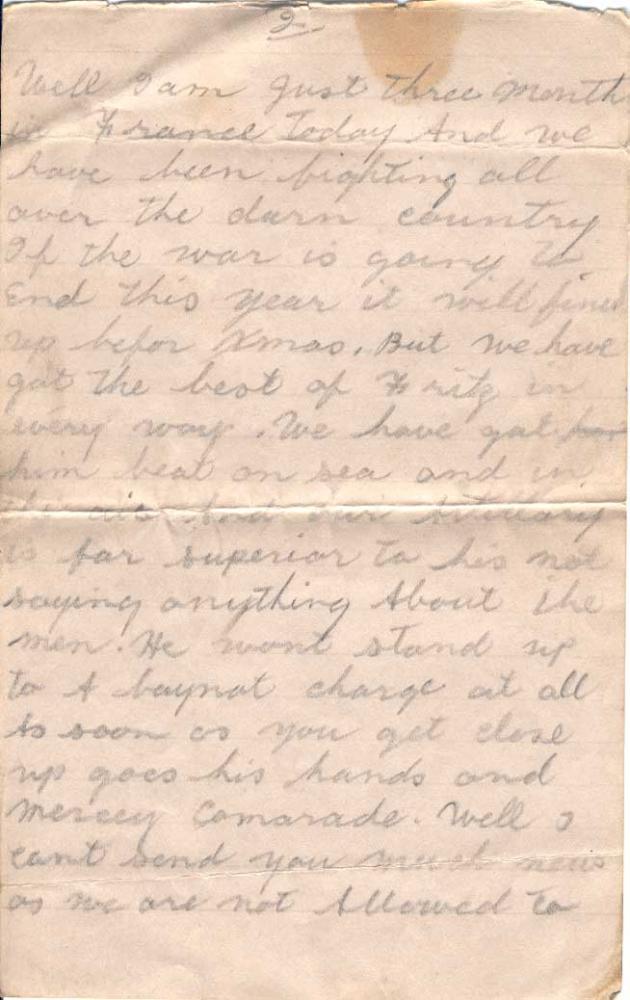 2.
Well I am just three month
in France Today And we
have been fighting all
over the darn country
If the war is going to
End this year it will
up befor Xmas. But we have
got the best of Fritz in
every way. We have got
him beat on sea and in
the air And our Artillary
is far superior to his not
saying anything About the
men. He wont stand up
to A baynot charge at all
As soon as you get close
up goes his hands and
Merccy Comarade. Well I
cant send you much news
as we are not Allowed to